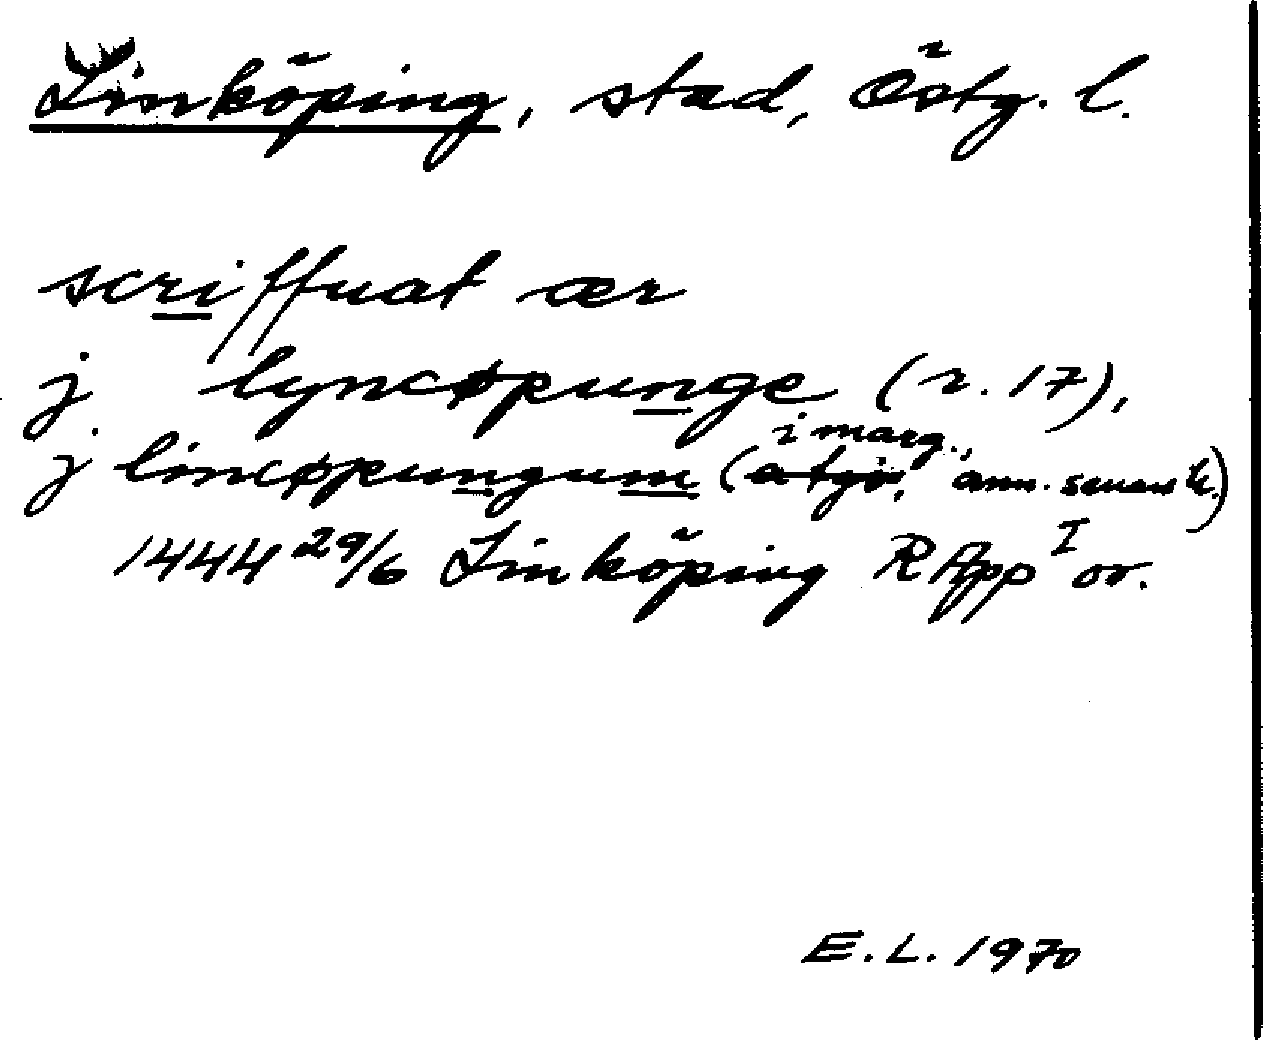 Linköping, stad, Östg. l.
scriffuat ær
j lyncøpunge (r. 17),
i marg.,
j lincøpungum (utgör, ann. samt. h.)
1444 29/6 Linköping RApp I or.
E.L. 1970